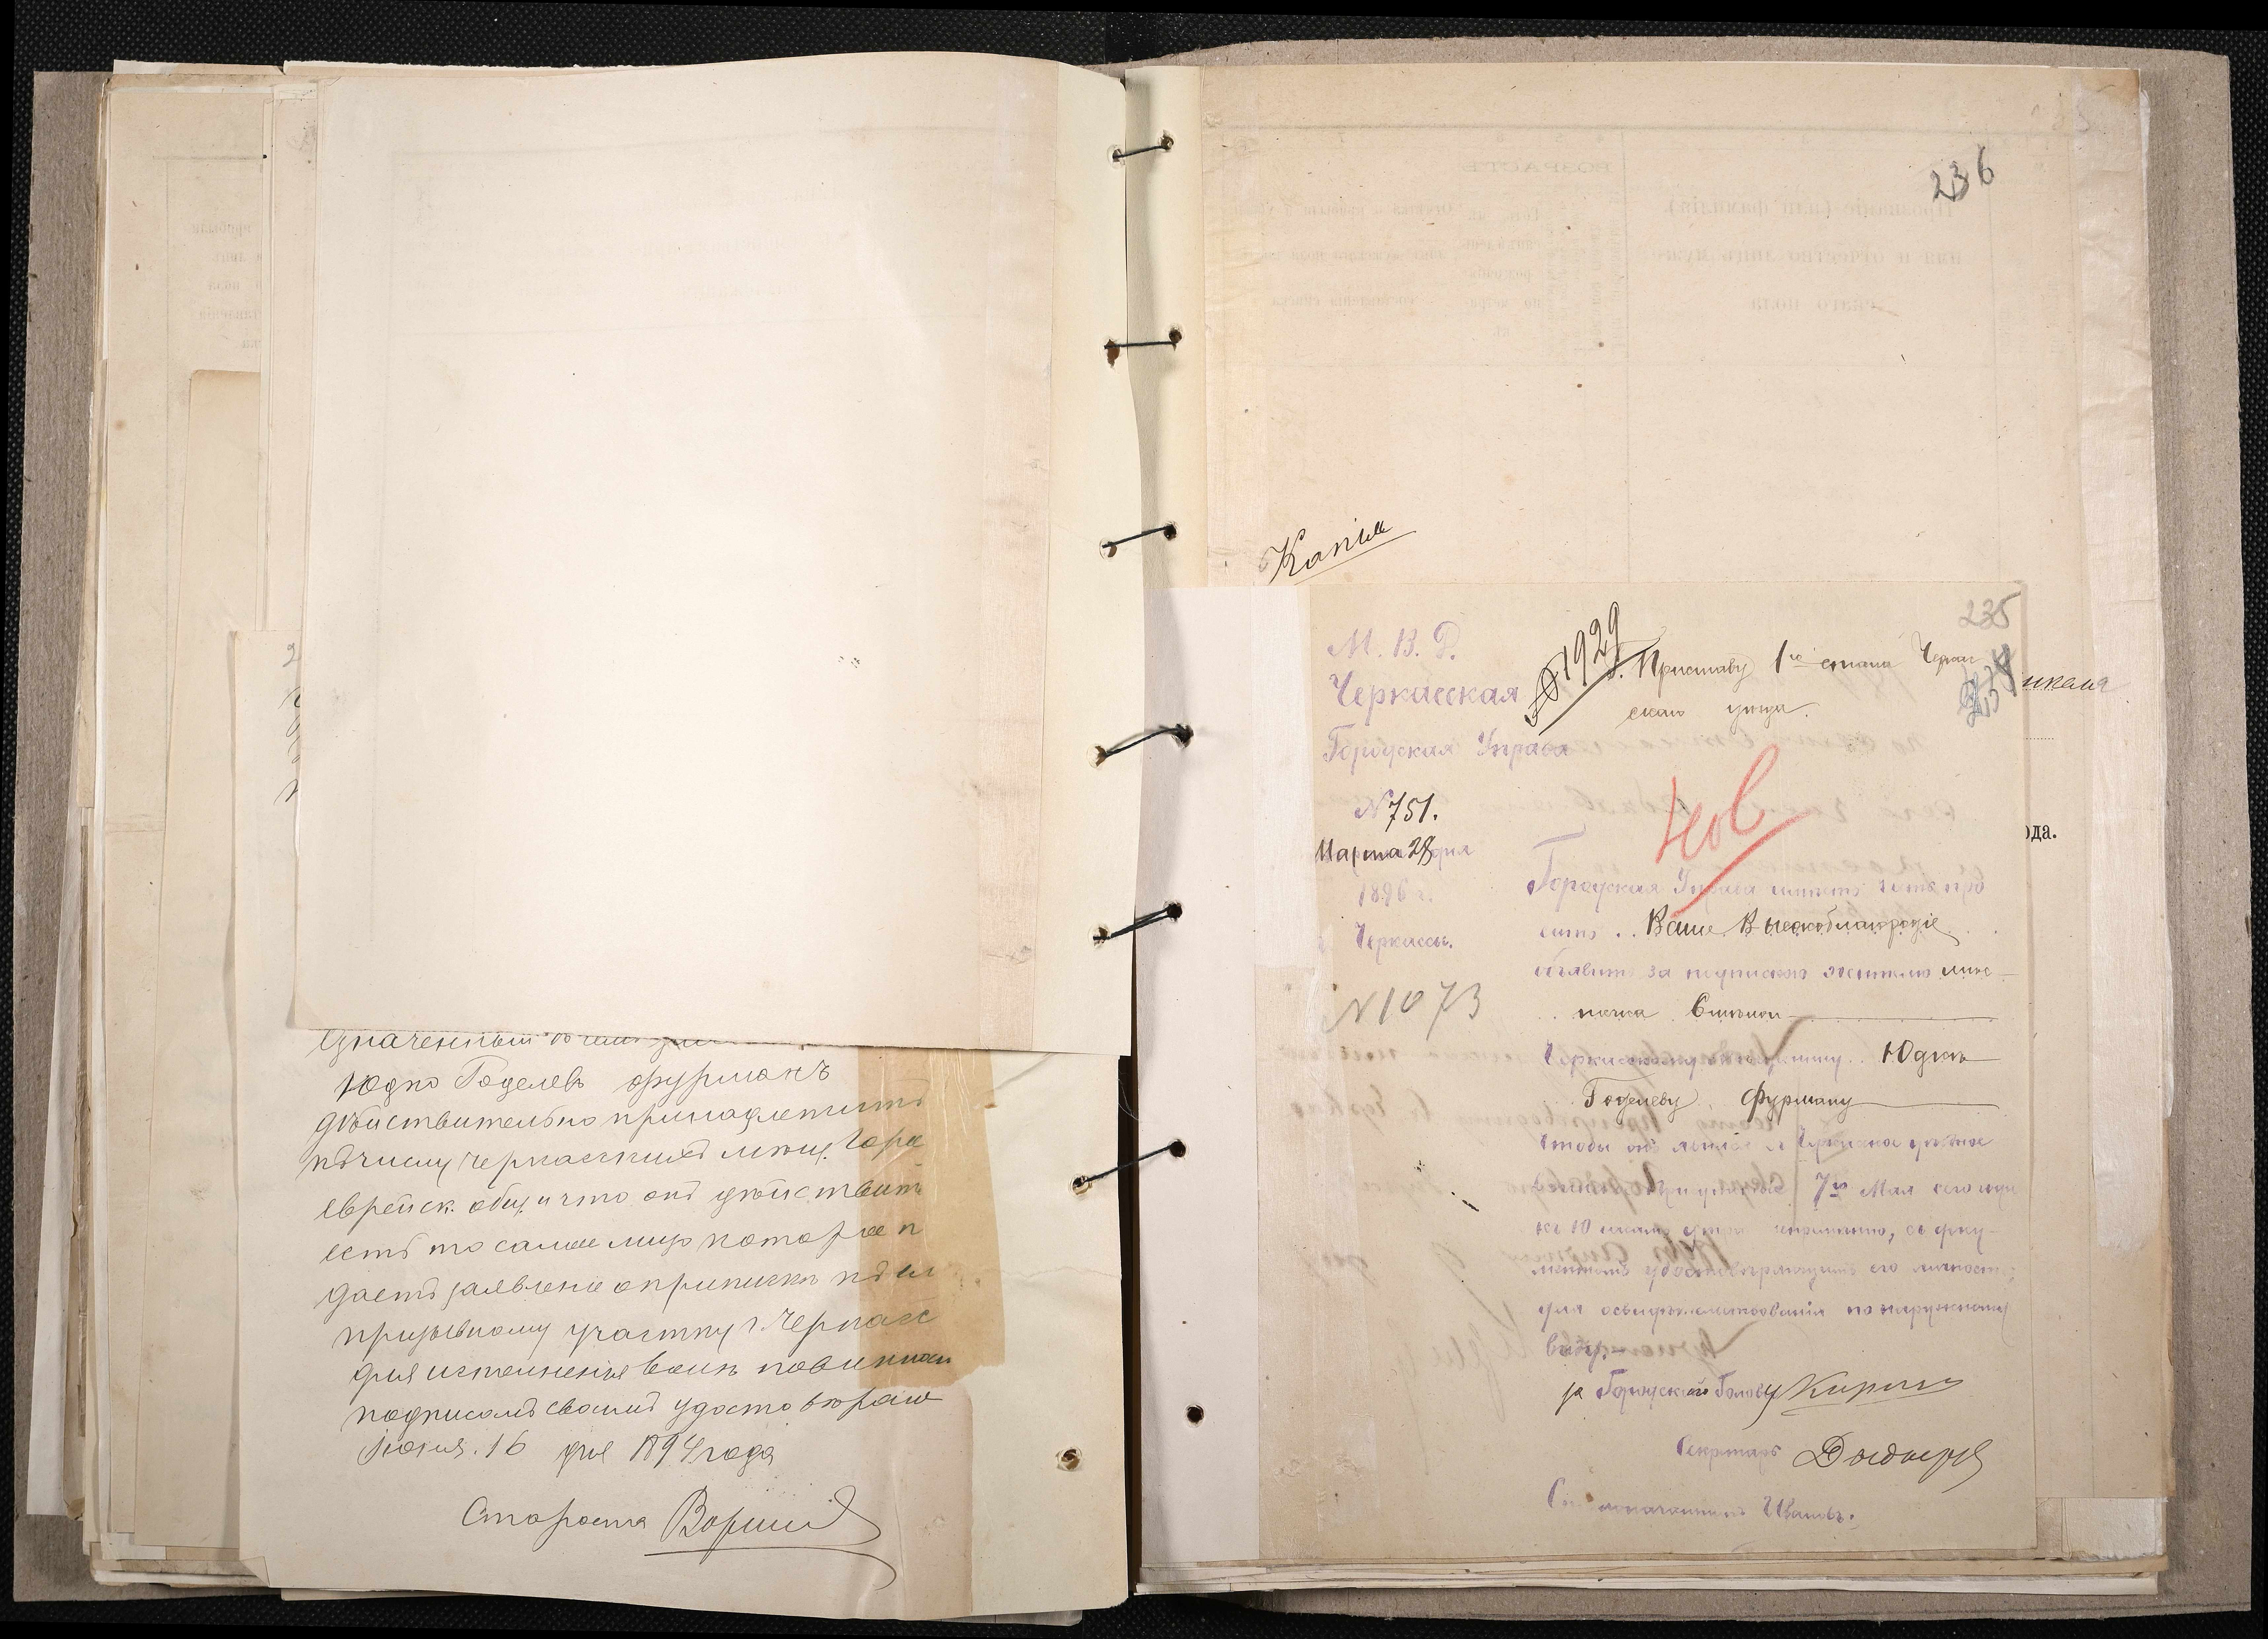 означенный въ
Юдко Годелевъ Фурманъ
дѣйствительно принадлежитъ
къ числу Черкасскихъ мѣщ. Гора
еврейск. общ. и что онъ дѣйствит
есть то самое лицо которое п
даетъ заявленіе о припискѣ къ
призывному участку г. Черкасс
для исполненія воинск повинности
подписомъ своимъ удостовѣряю
Іюня. 16 дня 1894 года
Староста
236
Копія
М. В. Д.
Черкасская
Городская Управа
N 751.
Марта 28 дня
1896 г.
г. Черкассы.
N 1073
№ 1929
235
г. Приставу 1го стана Черкас
скаго уѣзда.
Городская Управа имѣетъ честь про
сить Ваше Высокоблагородіе
объявить за подпискою жителю мѣс
течка Смѣлы
Черкасскому мѣщанину Юдкѣ
Годелеву Фурману
чтобы онъ явился въ Черкасское уѣздное
7го Мая сего года
къ 10 часамъ утра непремѣнно, съ доку-
ментомъ удостовѣряющимъ его личность;
для освидѣтельствованія по наружному
виду.
за Городского Голову
Секретарь
Ивановъ.
ода.